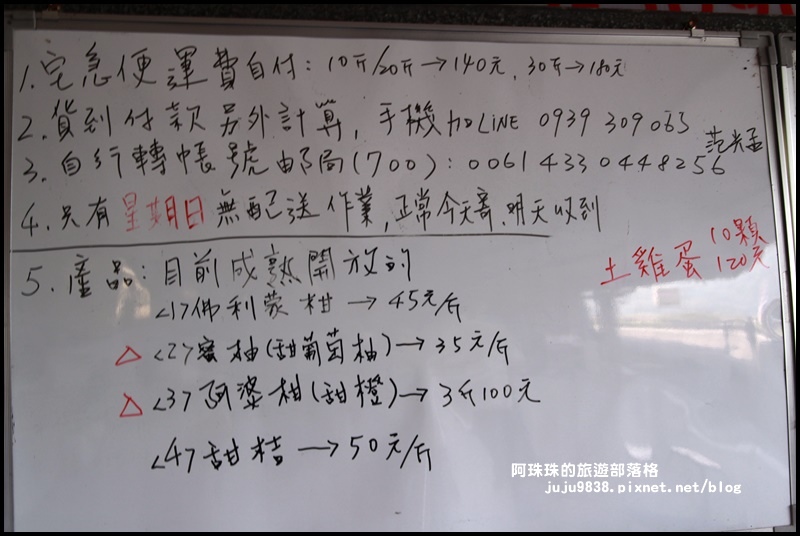 1. 宅急便運費自付：10斤/20斤→140元、30斤→180元
2. 貨到付款另外計算，手機加LINE 0939 309063
3. 自行轉帳號郵局(700)：0061433 0448256
4. 只有星期日無配送作業，正常今天寄、明天收到
土雞蛋 10顆 120元
5. 產品：目前成熟開放的
<1>佛利蒙柑→45元/斤
△ <2>蜜柚(甜葡萄柚)→35元/斤
△ <3>阿婆柑(甜橙)→3斤100元
<4>甜桔→50元/斤
阿珠珠的旅遊部落格
juju9838.pixnet.net/blog